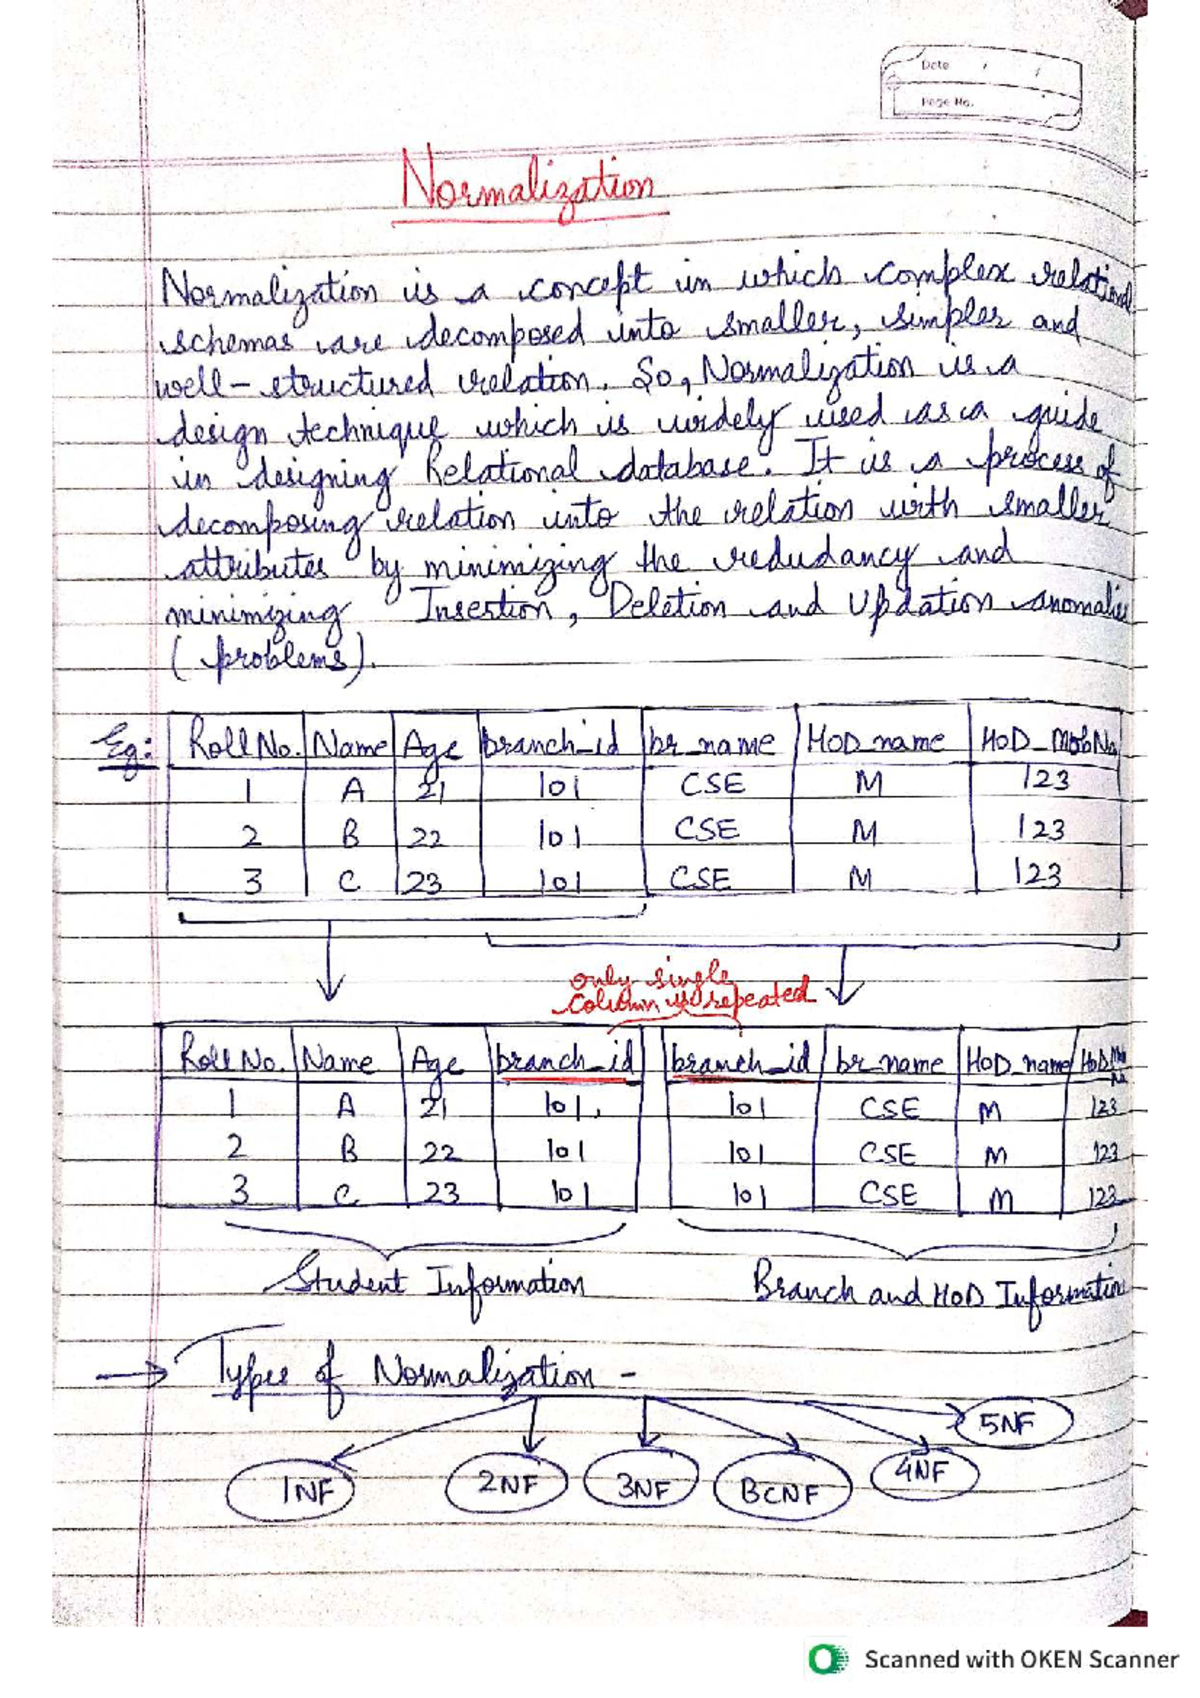 Date
Page No.
Normalization
Normalization is a concept in which complex relational
schemas are decomposed into smaller, simpler and
well-structured relation. So, Normalization is a
design technique which is widely used as a guide
in designing Relational database. It is a process of
decomposing relation into the relation with smaller
attributes by minimizing the redudancy and
minimizing Insertion, Deletion and Updation anomalies
(problems).
Eg: Roll No. Name Age branch_id br_name HOD_name HOD_MobNo
1 A 21 101 CSE M 123
2 B 22 101 CSE M 123
3 C 23 101 CSE M 123
only single
column is repeated
Roll No. Name Age branch_id branch_id br_name HOD_name HOD_Mob No
1 A 21 101 101 CSE M 123
2 B 22 101 101 CSE M 123
3 C 23 101 101 CSE M 123
Student Information Branch and HOD Information
→ Types of Normalization -
1NF 2NF 3NF BCNF 4NF 5NF
Scanned with OKEN Scanner